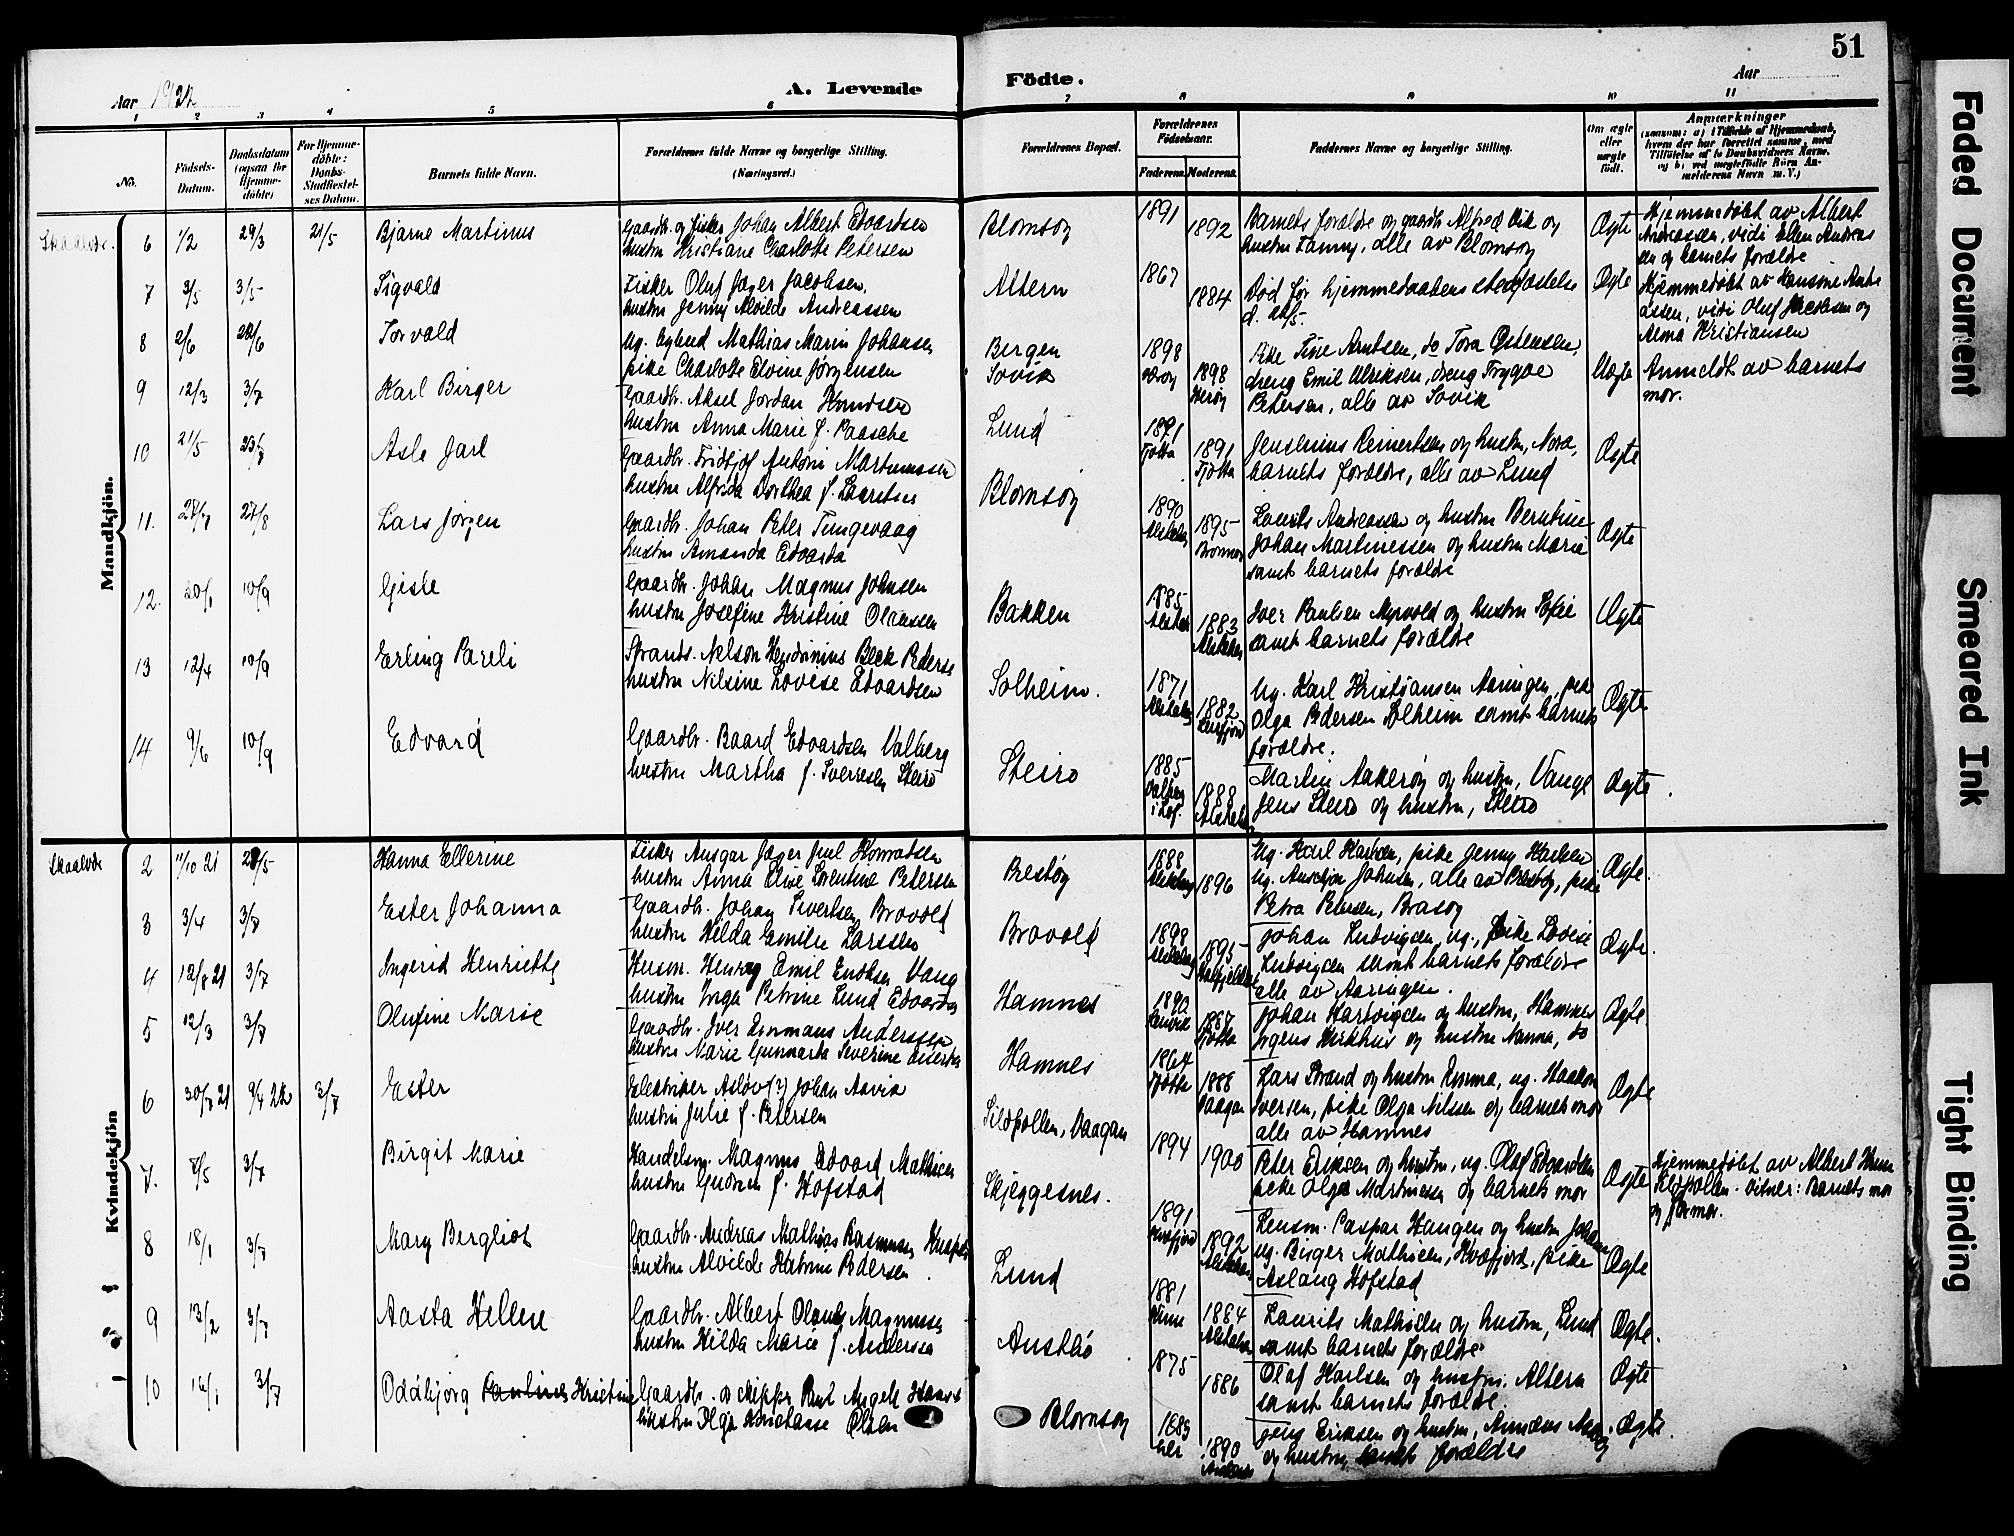 51
Aar 1922
A. Levende
Födte.
Aar
1 2 3 4 5 6 7 8 9 10 11
No.
Födsels-Datum.
Daabsdatum (ogsaa for Hjemme-döbte)
For Hjemme-döbte: Daabs-Stadfæstel-ses Datum.
Barnets fulde Navn.
Forældrenes fulde Navne og borgerlige Stilling.
(Næringsvei.)
Forældrenes Bopæl.
Forældrenes Födselsaar.
Faderens. Moderens.
Faddernes Navne og borgerlige Stilling.
Om ægte eller uægte födt.
Anmærkninger
(saasom: a) i Tilfælde af Hjemmedaab, hvem der har forrettet samme, med Tilföielse af to Daabsvidners Navne, og b) ved uægtefödte Börn An-melderens Navn m. V.)
Mandkjön.
6 1/2 29/3 21/5 Bjarne Martinus
Gaardb. og fisker Johan Albert Edvardsen
hustru Kristiane Charlotte Petersen
Blomsöy 1891 1892
Barnets forældre og gaardb Alfred Vik og
hustru Fanny, alle av Blomsöy
Ægte
Hjemmedöbt av Albert
Andreassen, vidi Ellen Andreas
sen og barnets forældre
7 3/5 3/5 Sigvald
Fisker Oluf Jæger Jacobsen,
hustru Jenny Alvilde Andreassen
Altern 1867 1884
Död för hjemmedaabens stadfæstelse
Ægte
Hjemmedöbt av Hansine Andre
assen, vidi Oluf Jacobsen og
Alma Kristiansen
8 2/6 28/6 Torvald
Ug. Mathias Marin Johansen
pike Charlotte Elvine Jørgensen
Bergen
Sövik
1898 1898
Pike Tine Arntsen, do Tora Østensen,
dreng Emil Ulriksen, dreng Trygve
Petersen, alle av Sövik
Uægte
Anmeldt av barnets
mor.
9 12/3 3/7 Karl Birger
Gaardbr. Aksel Jordan Knudsen
hustru Anna Marie f. Paasche
Lund 1891 Tjötta 1891 Tjötta
Jensenius Reinertsen og hustru, Nora,
barnets forældre, alle av Lund
Ægte
10 21/5 23/7 Asle Jarl
Gaardbr. Fridtjof Antoni Martinussen
hustru Alfrida Dorthea f. Lauritsen
Blomsöy 1890 1895
Laurits Andreassen og hustru Berntine
Johan Martinessen og hustru Marie
samt barnets forældre
Ægte
11. 27/7 27/8 Lars Jörgen
Gaardbr. Johan Peter Tungevaag
hustru Amanda Edvarda
12. 20/1 10/9 Gisle
Gaardbr. Johan Magnus Johnsen
hustru Josefine Kristine Olaussen
Bakken 1885 1883
Iver Paulsen Myrvold og hustru Sofie
samt barnets forældre
Ægte
13 12/4 10/9 Erling Pareli
Strands. Nelson Hendrinius Beck Peders
hustru Nilsine Lovise Edvardsen
Solheim. 1871 1882
Ug. Karl Kristiansen Aaringen, pike
Olga Pedersen Solheim samt barnets
forældre.
Ægte
14 9/6 10/9 Edvard
Gaardbr. Baard Edvardsen Valberg
hustru Martha f. Sverresen Steiro
Steiro 1885 1888
Martin Aakeröy og hustru, Vange
Jens Steiro og hustru, Steiro
Ægte
Kvindekjön
2 11/10 21 28/5 Hanna Ellerine
Fisker Ansgar Jæger Juul Konradsen
hustru Anna Elise Lorentine Petersen
Bresöy 1888 1896
Ug. Karl Karlsen, pike Jenny Karlsen
ug. Johnsen, alle av Bresöy, pike
Petra Petersen, Brasöy
Ægte.
3 3/4 3/7 Ester Johanna
Gaardbr. Johan Sivertsen Bravold
hustru Hilda Emilie Larssen
Bravold 1898 1895
Johan Ludvigsen, ug., pike Lovise
Ludvigsen samt barnets forældre
alle av Aaringen.
Ægte.
4 12/8 21 3/7 Ingerid Henriette
Henry Emil Vang
hustru Inga Petrine Lund Edvards
Hamnes 1890 1887 Tjötta
Johan Hartvigsen og hustru, Hamnes
Jrgens Kirkhus og hustru Nanna, do
Ægte.
5 12/3 3/7 Olufine Marie
Gaardbr. Iver Anderssen
hustru Marie Gunnarda Severine
Hamnes 1864 Tjötta 1888 Vaagan
Lars Strand og hustru Emma, ug. Haakon
Iversen, pike Olga Nilssen og barnets mor
alle av Hamnes
Ægte
6 30/7 21 9/4 22 3/7 Ester
Elektriker Aslöv(?) Johan Aavik
hustru Julie f. Petersen
Sildpollen, Vaagan 1894 1900
Peter Eriksen og hustru, ug. Olaf Edvardsen
pike Olga Martinesen og barnets mor
Ægte
Hjemmedöbt av Albert
Sildpollen. Vitner: Barnets mor
og farmor.
7. 8/5 3/7 Birgit Marie
Handelsm. Magnus Edvard Mathisen
hustru Gudrun f. Hofstad
Skjeggesnes. 1891 Kvæfjord 1892
Lensm. Caspar Haugen og hustru Johanna
ug. Birger Mathisen, Kvæfjord, pike
Aslaug Hofstad
Ægte
8 18/1 3/7 Mary Bergliot
Gaardbr. Andreas Mathias Rasmussen
hustru Alvilde Katrine Pedersen.
Lund 1881 1884
Laurits Mathisen og hustru, Lund
samt barnets forældre.
Ægte.
9 13/2 3/7 Aasta Hellene
Gaardbr. Albert Olaus Magnussen
hustru Hilda Marie f. Anderssen
Austbö 1875 1886
Olaf Karlsen og hustru. Altern
samt barnets forældre.
Ægte
10 16/1 3/7 Oddbjörg Kristine
Gaardbr. og skipper Bernt Angell
hustru Olga Olsen
Blomsöy 1883 1890
Jens Eriksen og hustru,
og hustru, samt forældre
Ægte.
Faded Document
Smeared Ink
Tight Binding